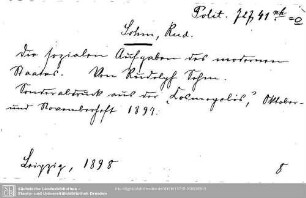 Polit. 727, 41
Sohm, Rud.
Die sozialen Aufgaben des modernen
Staates. Von Rudolph Sohm.
Sonderabdruck aus der „Cosmopolis“, Oktober-
und Novemberheft 1897.
Leipzig, 1898
8
Sächsische Landesbibliothek -
Staats- und Universitätsbibliothek Dresden